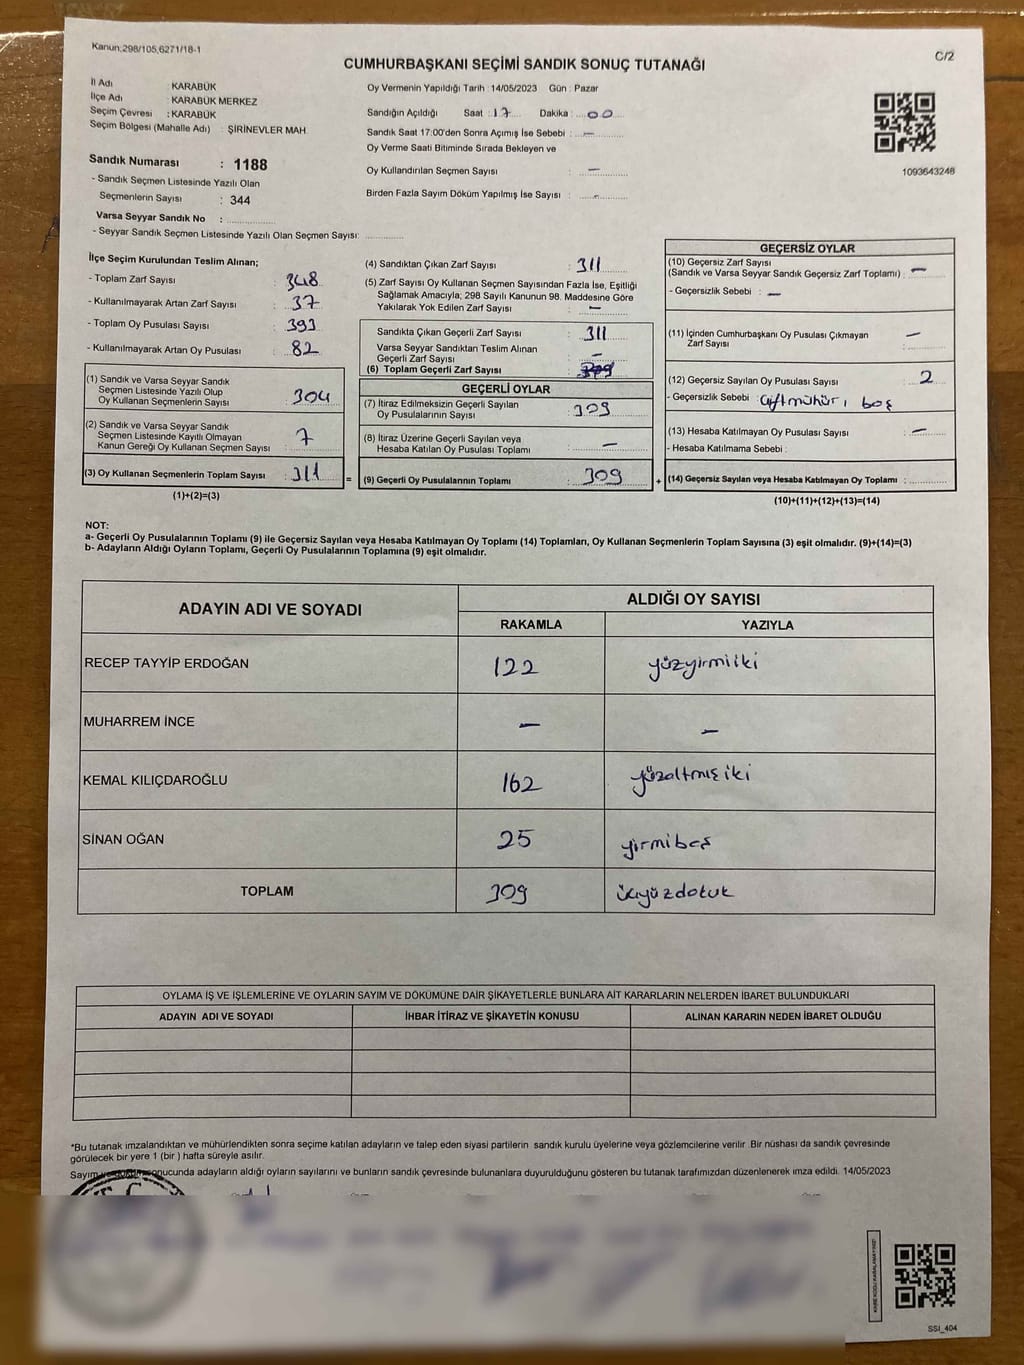 Kanun:298/105,6271/18-1
C/2
CUMHURBAŞKANI SEÇİMİ SANDIK SONUÇ TUTANAĞI
İl Adı : KARABÜK
İlçe Adı : KARABÜK MERKEZ
Seçim Çevresi : KARABÜK
Seçim Bölgesi (Mahalle Adı) : ŞİRİNEVLER MAH.
Sandık Numarası : 1188
- Sandık Seçmen Listesinde Yazılı Olan
Seçmenlerin Sayısı : 344
Varsa Seyyar Sandık No :
- Seyyar Sandık Seçmen Listesinde Yazılı Olan Seçmen Sayısı:
Oy Vermenin Yapıldığı Tarih : 14/05/2023 Gün : Pazar
Sandığın Açıldığı Saat : 17 Dakika : 00
Sandık Saat 17:00'den Sonra Açımış İse Sebebi : —
Oy Verme Saati Bitiminde Sırada Bekleyen ve
Oy Kullandırılan Seçmen Sayısı : —
Birden Fazla Sayım Döküm Yapılmış İse Sayısı : -
1093643248
İlçe Seçim Kurulundan Teslim Alınan;
- Toplam Zarf Sayısı : 348
- Kullanılmayarak Artan Zarf Sayısı : 37
- Toplam Oy Pusulası Sayısı : 393
- Kullanılmayarak Artan Oy Pusulası : 82
(1) Sandık ve Varsa Seyyar Sandık
Seçmen Listesinde Yazılı Olup
Oy Kullanan Seçmenlerin Sayısı : 304
(2) Sandık ve Varsa Seyyar Sandık
Seçmen Listesinde Kayıtlı Olmayan
Kanun Gereği Oy Kullanan Seçmen Sayısı : 7
(3) Oy Kullanan Seçmenlerin Toplam Sayısı : 311
(1)+(2)=(3)
(4) Sandıktan Çıkan Zarf Sayısı : 311
(5) Zarf Sayısı Oy Kullanan Seçmen Sayısından Fazla İse, Eşitliği
Sağlamak Amacıyla; 298 Sayılı Kanunun 98. Maddesine Göre
Yakılarak Yok Edilen Zarf Sayısı : —
Sandıkta Çıkan Geçerli Zarf Sayısı : 311
Varsa Seyyar Sandıktan Teslim Alınan
Geçerli Zarf Sayısı : —
(6) Toplam Geçerli Zarf Sayısı :
GEÇERLİ OYLAR
(7) İtiraz Edilmeksizin Geçerli Sayılan
Oy Pusulalarının Sayısı : 309
(8) İtiraz Üzerine Geçerli Sayılan veya
Hesaba Katılan Oy Pusulası Toplamı : —
= (9) Geçerli Oy Pusulalarının Toplamı : 309 +
GEÇERSİZ OYLAR
(10) Geçersiz Zarf Sayısı
(Sandık ve Varsa Seyyar Sandık Geçersiz Zarf Toplamı) : —
- Geçersizlik Sebebi : —
(11) İçinden Cumhurbaşkanı Oy Pusulası Çıkmayan
Zarf Sayısı : —
(12) Geçersiz Sayılan Oy Pusulası Sayısı : 2
- Geçersizlik Sebebi : çiftmühür, boş
(13) Hesaba Katılmayan Oy Pusulası Sayısı : —
- Hesaba Katılmama Sebebi :
(14) Geçersiz Sayılan veya Hesaba Katılmayan Oy Toplamı :
(10)+(11)+(12)+(13)=(14)
NOT:
a- Geçerli Oy Pusulalarının Toplamı (9) ile Geçersiz Sayılan veya Hesaba Katılmayan Oy Toplamı (14) Toplamları, Oy Kullanan Seçmenlerin Toplam Sayısına (3) eşit olmalıdır. (9)+(14)=(3)
b- Adayların Aldığı Oyların Toplamı, Geçerli Oy Pusulalarının Toplamına (9) eşit olmalıdır.
ADAYIN ADI VE SOYADI ALDIĞI OY SAYISI
RAKAMLA YAZIYLA
RECEP TAYYİP ERDOĞAN 122 yüzyirmiiki
MUHARREM İNCE — —
KEMAL KILIÇDAROĞLU 162 yüzaltmışiki
SİNAN OĞAN 25 yirmibeş
TOPLAM 309 üçyüzdokuz
OYLAMA İŞ VE İŞLEMLERİNE VE OYLARIN SAYIM VE DÖKÜMÜNE DAİR ŞİKAYETLERLE BUNLARA AİT KARARLARIN NELERDEN İBARET BULUNDUKLARI
ADAYIN ADI VE SOYADI İHBAR İTİRAZ VE ŞİKAYETİN KONUSU ALINAN KARARIN NEDEN İBARET OLDUĞU
*Bu tutanak imzalandıktan ve mühürlendikten sonra seçime katılan adayların ve talep eden siyasi partilerin sandık kurulu üyelerine veya gözlemcilerine verilir. Bir nüshası da sandık çevresinde
görülecek bir yere 1 (bir ) hafta süreyle asılır.
Sayım sonucunda adayların aldığı oyların sayılarını ve bunların sandık çevresinde bulunanlara duyurulduğunu gösteren bu tutanak tarafımızdan düzenlenerek imza edildi. 14/05/2023
SSI_404